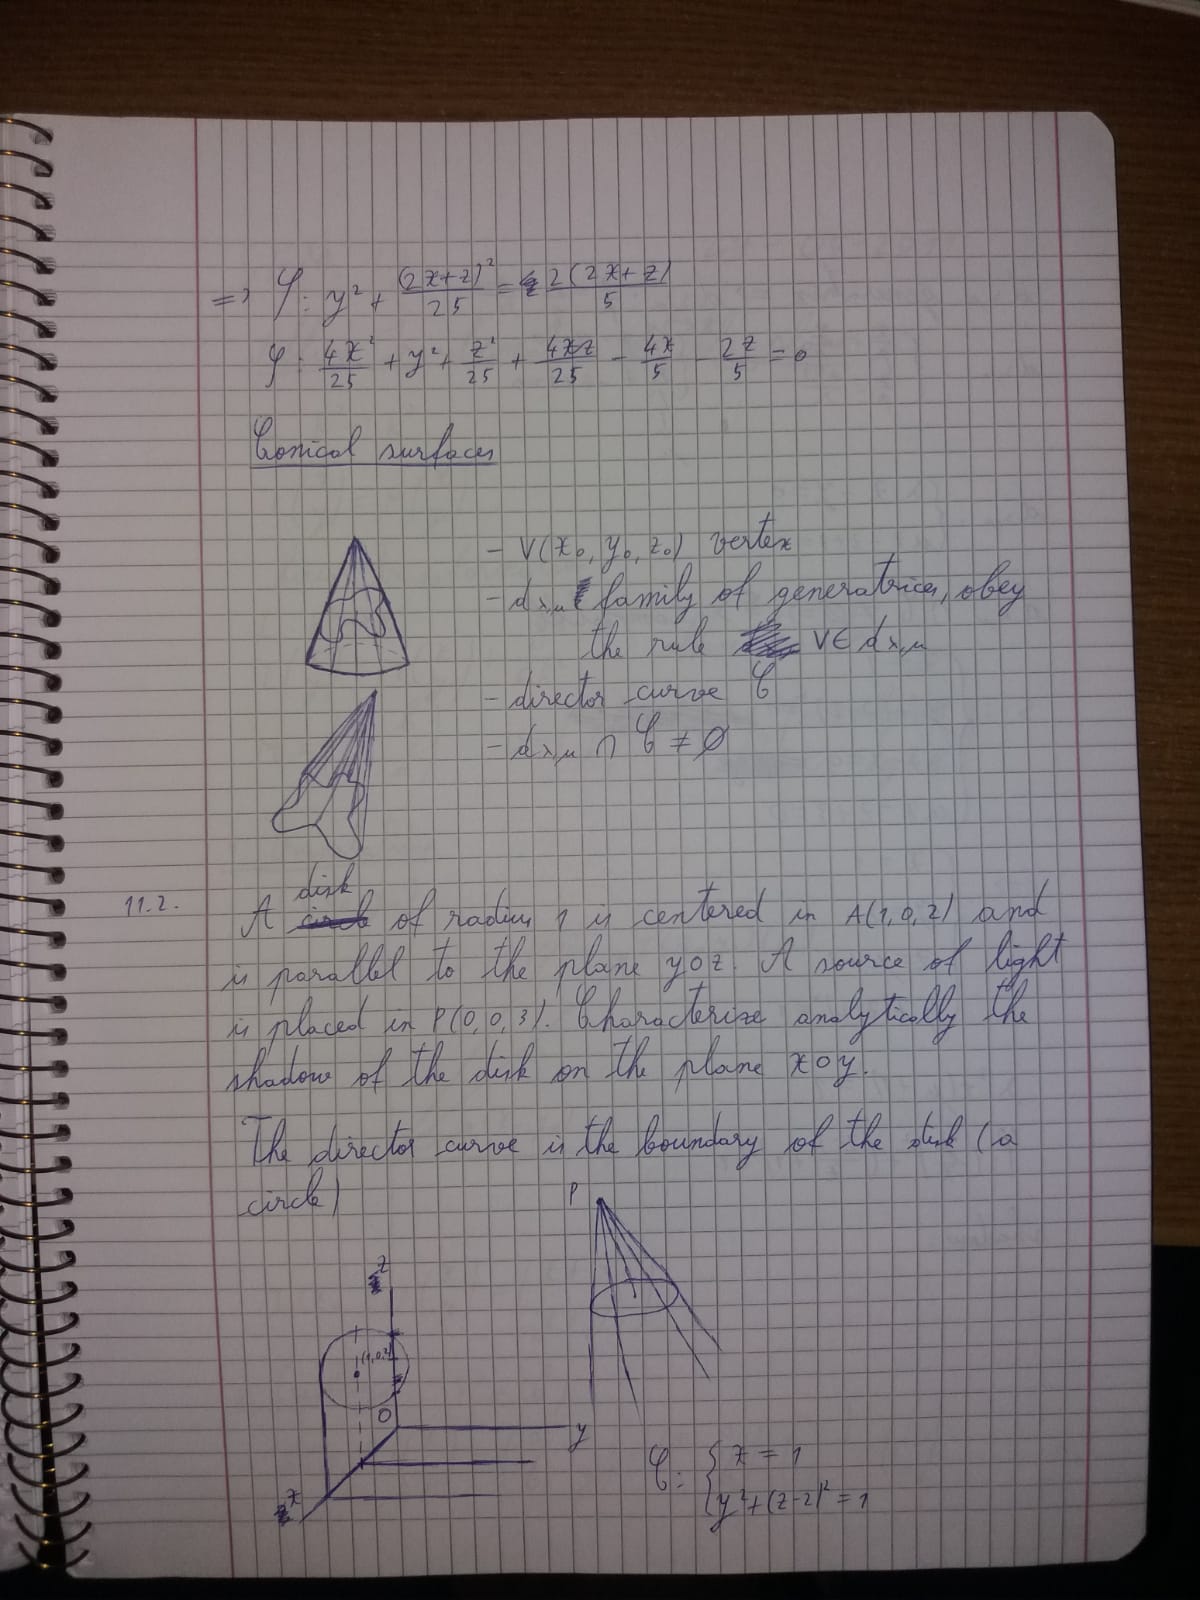 => φ: y² + (2x+z)²/25 = 2(2x+z)/5
φ: 4x²/25 + y² + z²/25 + 4xz/25 - 4x/5 - 2z/5 = 0
Conical surfaces
- V(x₀, y₀, z₀) vertex
- dλ,μ family of generatrices, obey
the rule V ∈ dλ,μ
- director curve C
- dλ,μ ∩ C ≠ ∅
disk
11.2. A circle of radius 1 is centered in A(1,0,2) and
is parallel to the plane yOz. A source of light
is placed in P(0,0,3). Characterize analytically the
shadow of the disk on the plane xOy.
The director curve is the boundary of the disk (a
circle)
P
z
(1,0,2)
O
y
x
C: { x = 1
y² + (z-2)² = 1